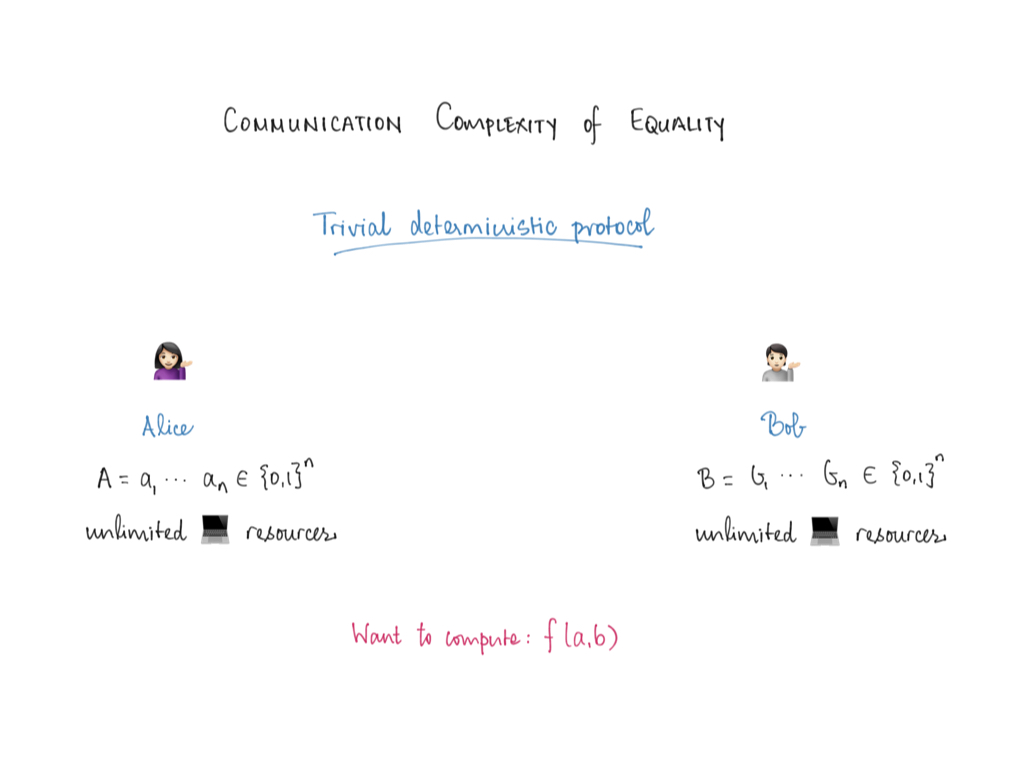 COMMUNICATION COMPLEXITY of EQUALITY
Trivial deterministic protocol
Alice
Bob
A = a₁ ⋯ aₙ ∈ {0,1}ⁿ
B = b₁ ⋯ bₙ ∈ {0,1}ⁿ
unlimited 💻 resources
unlimited 💻 resources
Want to compute: f(a,b)